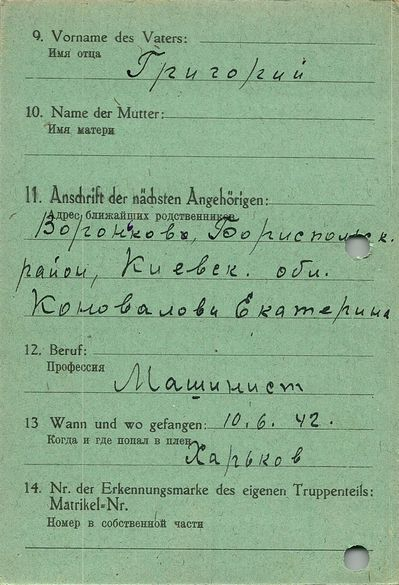 9. Vorname des Vaters:
Имя отца
Григорий
10. Name der Mutter:
Имя матери
11. Anschrift der nächsten Angehörigen:
Адрес ближайших родственников
Воронково, Бориспольск.
район, Киевск. обл.
Коновалови Екатерина
12. Beruf:
Профессия
Машинист
13 Wann und wo gefangen: 10.6.42.
Когда и где попал в плен
Харьков
14. Nr. der Erkennungsmarke des eigenen Truppenteils:
Matrikel-Nr.
Номер в собственной части